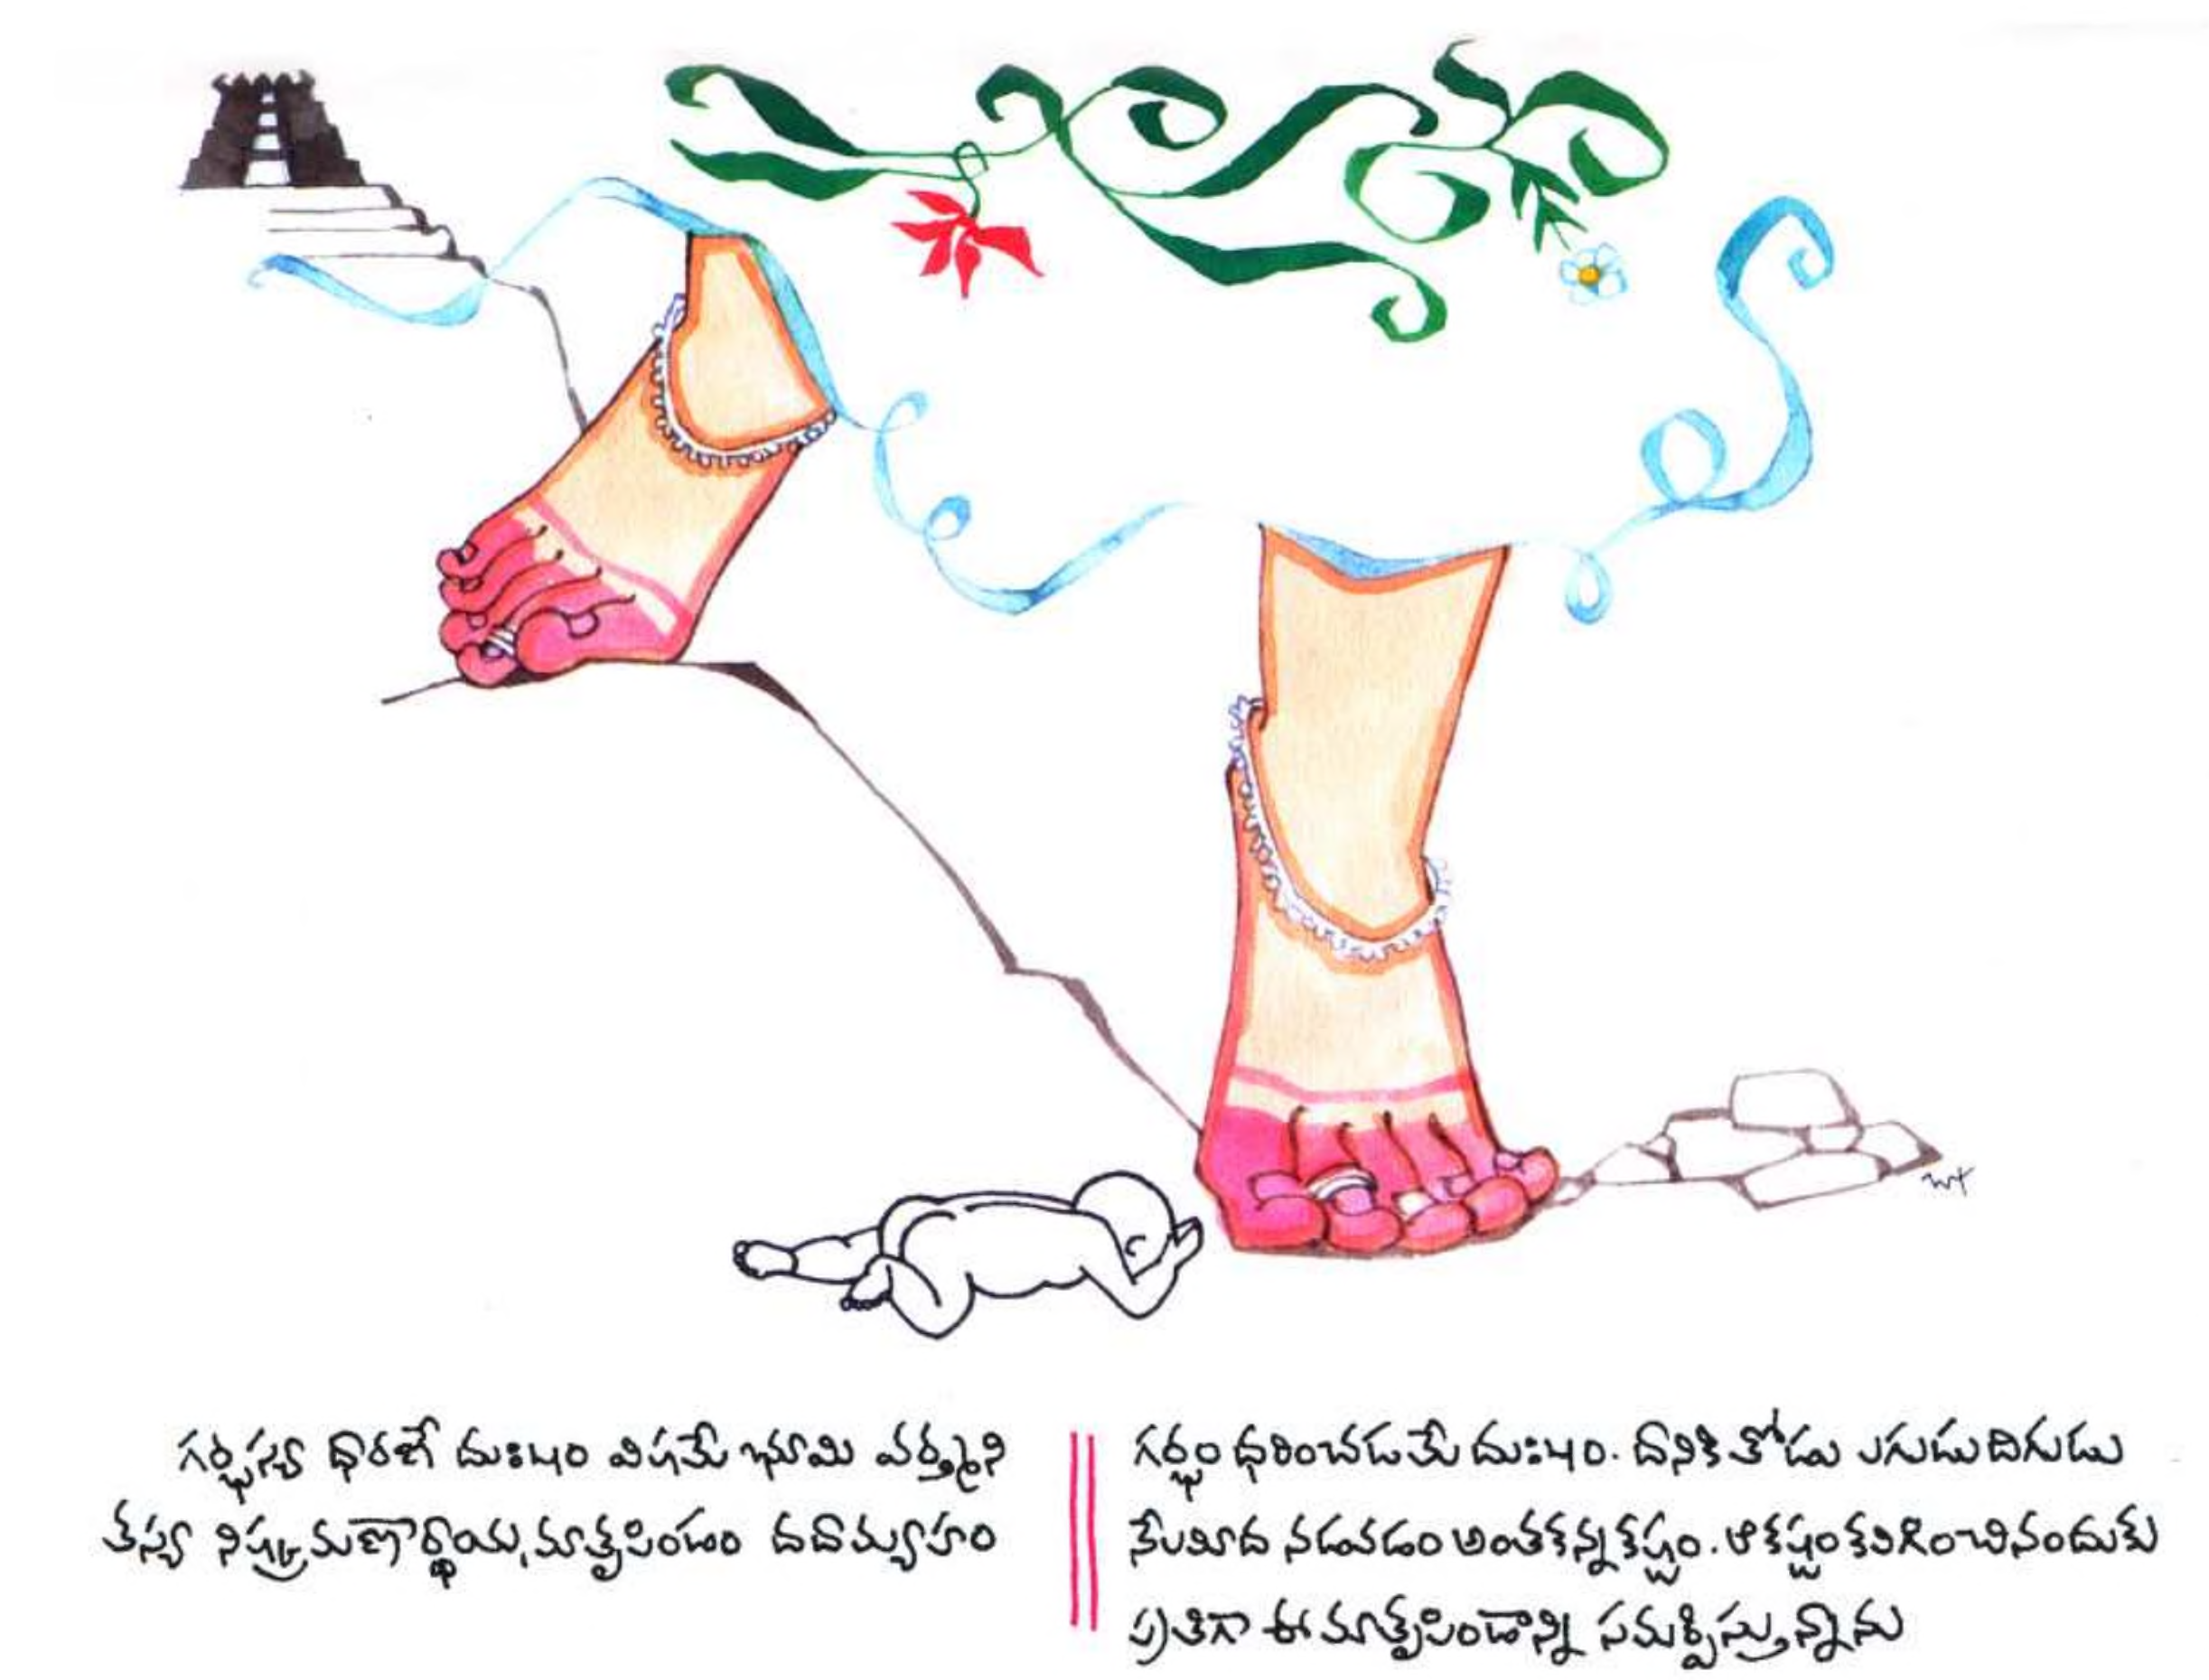 గర్భస్య ధారణే దుఃఖం విషమే భూమి వర్త్మని
తస్య నిష్క్రమణార్థాయ, మాతృపిండం దదామ్యహం
గర్భం ధరించడమే దుఃఖం. దానికి తోడు ఎగుడు దిగుడు
నేలమీద నడవడం అంతకన్న కష్టం. ఆ కష్టం కలిగించినందుకు
ప్రతిగా ఈ మాతృపిండాన్ని సమర్పిస్తున్నాను